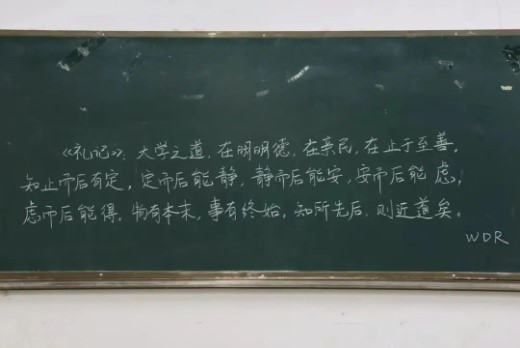 《礼记》：大学之道，在明明德，在亲民，在止于至善。
知止而后有定，定而后能静，静而后能安，安而后能虑，
虑而后能得。物有本末，事有终始，知所先后，则近道矣。
WDR